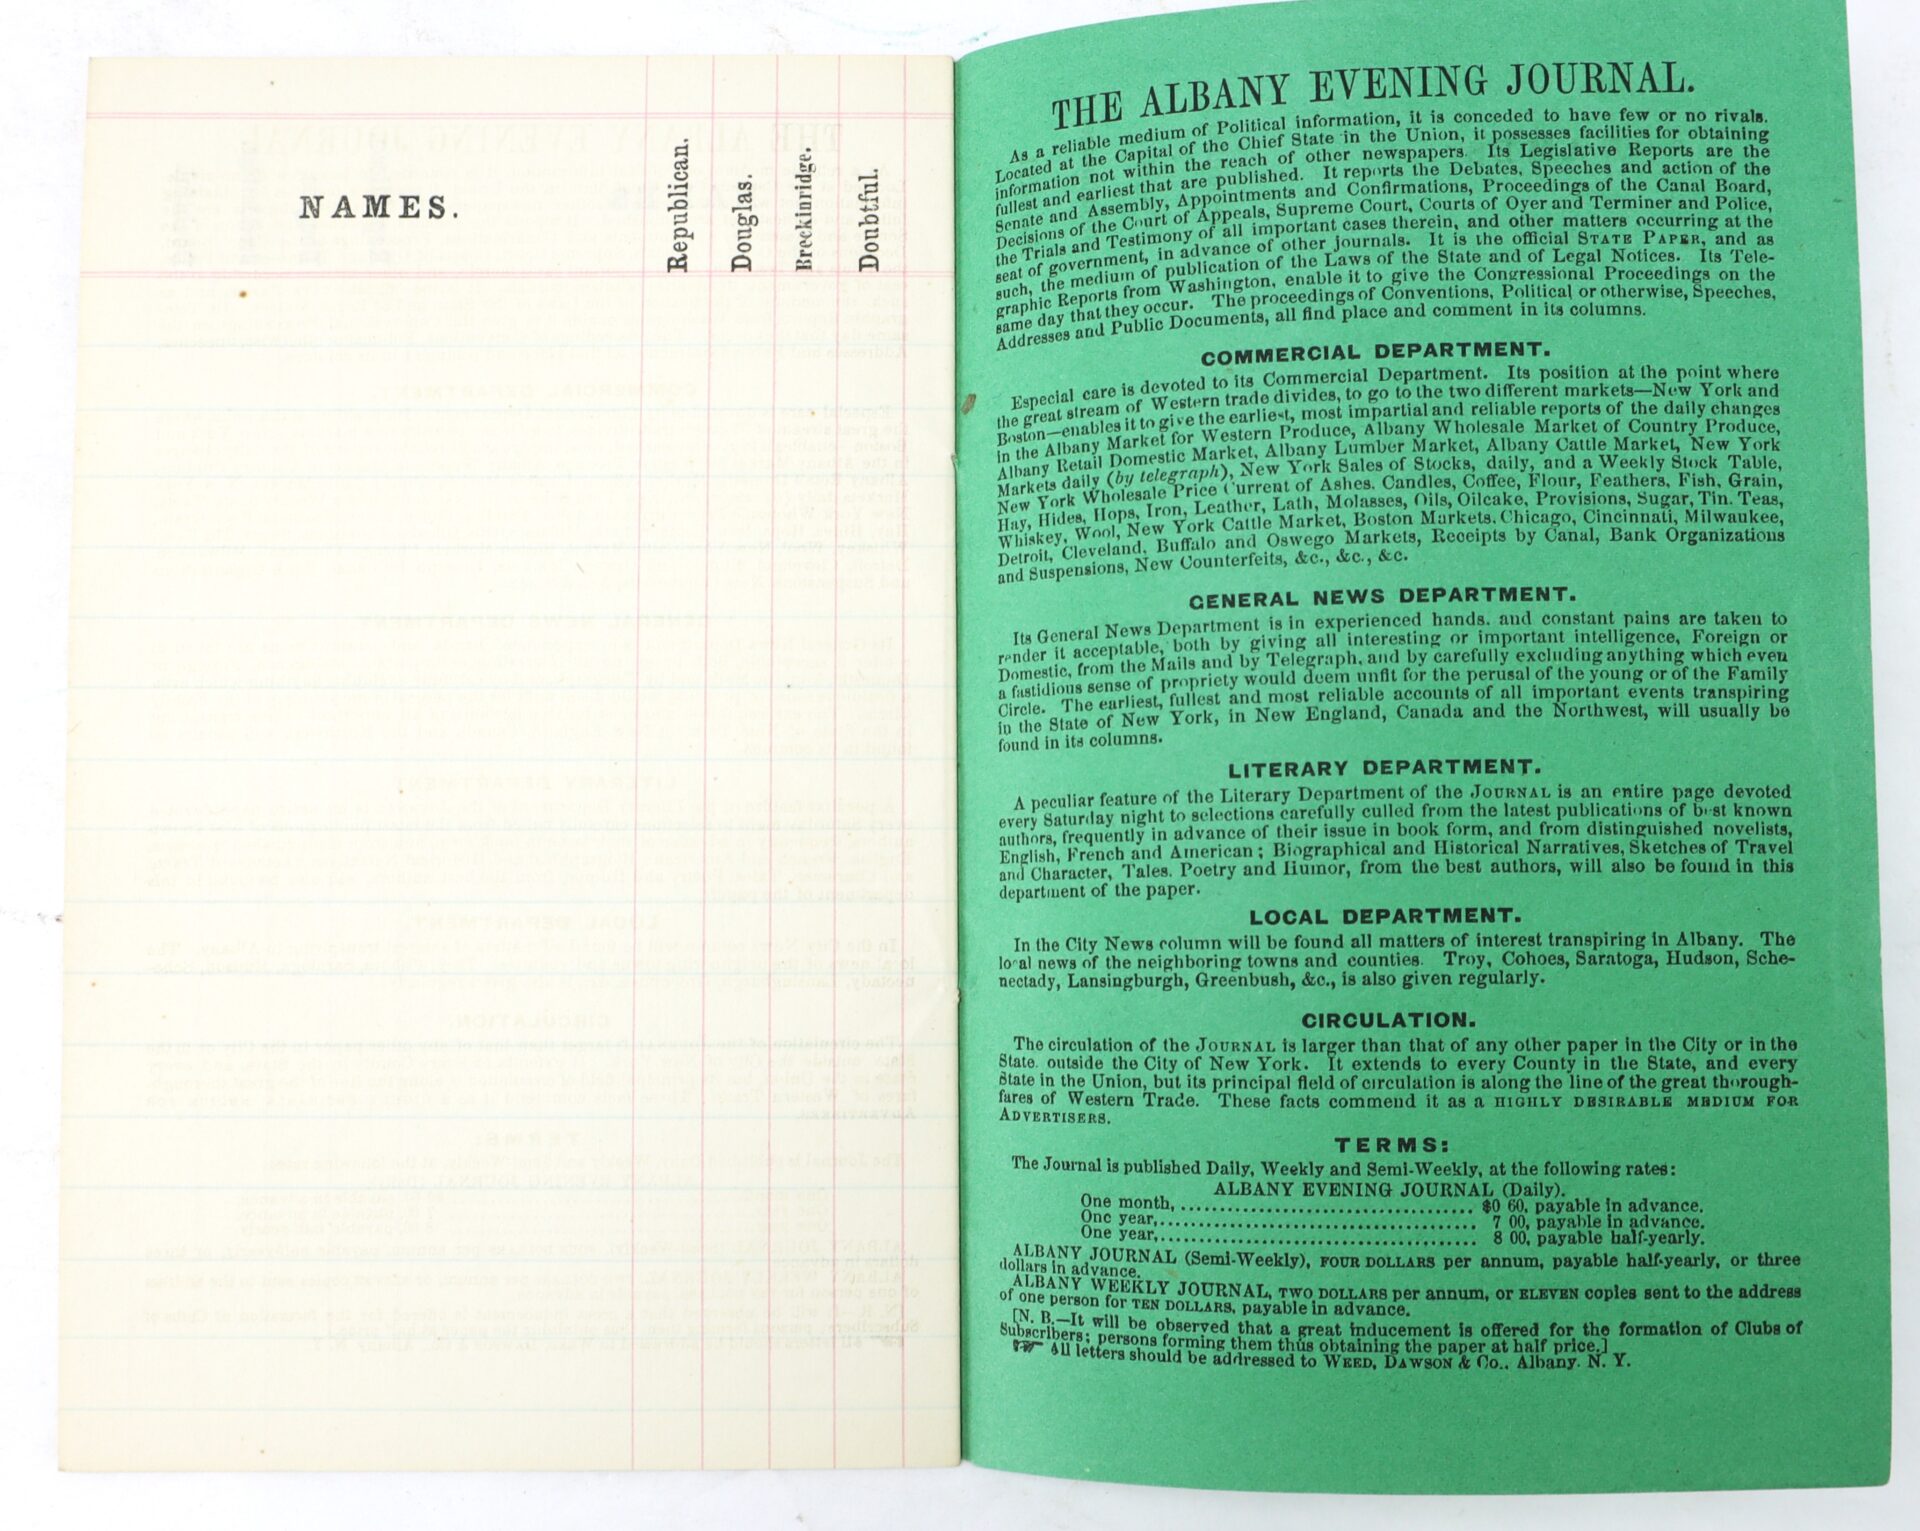 NAMES.
Republican.
Douglas.
Breckinridge.
Doubtful.
THE ALBANY EVENING JOURNAL.
As a reliable medium of Political information, it is conceded to have few or no rivals.
Located at the Capital of the Chief State in the Union, it possesses facilities for obtaining
information not within the reach of other newspapers. Its Legislative Reports are the
fullest and earliest that are published. It reports the Debates, Speeches and action of the
Senate and Assembly, Appointments and Confirmations, Proceedings of the Canal Board,
Decisions of the Court of Appeals, Supreme Court, Courts of Oyer and Terminer and Police,
the Trials and Testimony of all important cases therein, and other matters occurring at the
seat of government, in advance of other journals. It is the official STATE PAPER, and as
such, the medium of publication of the Laws of the State and of Legal Notices. Its Tele-
graphic Reports from Washington, enable it to give the Congressional Proceedings on the
same day that they occur. The proceedings of Conventions, Political or otherwise, Speeches,
Addresses and Public Documents, all find place and comment in its columns.
COMMERCIAL DEPARTMENT.
Especial care is devoted to its Commercial Department. Its position at the point where
the great stream of Western trade divides, to go to the two different markets—New York and
Boston—enables it to give the earliest, most impartial and reliable reports of the daily changes
in the Albany Market for Western Produce, Albany Wholesale Market of Country Produce,
Albany Retail Domestic Market, Albany Lumber Market, Albany Cattle Market, New York
Markets daily (by telegraph), New York Sales of Stocks, daily, and a Weekly Stock Table,
New York Wholesale Price Current of Ashes. Candles, Coffee, Flour, Feathers, Fish, Grain,
Hay, Hides, Hops, Iron, Leather, Lath, Molasses, Oils, Oilcake, Provisions, Sugar, Tin. Teas,
Whiskey, Wool, New York Cattle Market, Boston Markets. Chicago, Cincinnati, Milwaukee,
Detroit, Cleveland, Buffalo and Oswego Markets, Receipts by Canal, Bank Organizations
and Suspensions, New Counterfeits, &c., &c., &c.
GENERAL NEWS DEPARTMENT.
Its General News Department is in experienced hands. and constant pains are taken to
render it acceptable, both by giving all interesting or important intelligence, Foreign or
Domestic, from the Mails and by Telegraph, and by carefully excluding anything which even
a fastidious sense of propriety would deem unfit for the perusal of the young or of the Family
Circle. The earliest, fullest and most reliable accounts of all important events transpiring
in the State of New York, in New England, Canada and the Northwest, will usually be
found in its columns.
LITERARY DEPARTMENT.
A peculiar feature of the Literary Department of the JOURNAL is an entire page devoted
every Saturday night to selections carefully culled from the latest publications of best known
authors, frequently in advance of their issue in book form, and from distinguished novelists,
English, French and American; Biographical and Historical Narratives, Sketches of Travel
and Character, Tales. Poetry and Humor, from the best authors, will also be found in this
department of the paper.
LOCAL DEPARTMENT.
In the City News column will be found all matters of interest transpiring in Albany. The
local news of the neighboring towns and counties. Troy, Cohoes, Saratoga, Hudson, Sche-
nectady, Lansingburgh, Greenbush, &c., is also given regularly.
CIRCULATION.
The circulation of the JOURNAL is larger than that of any other paper in the City or in the
State. outside the City of New York. It extends to every County in the State, and every
State in the Union, but its principal field of circulation is along the line of the great thorough-
fares of Western Trade. These facts commend it as a HIGHLY DESIRABLE MEDIUM FOR
ADVERTISERS.
TERMS:
The Journal is published Daily, Weekly and Semi-Weekly, at the following rates:
ALBANY EVENING JOURNAL (Daily).
One month, .................................. $0 60, payable in advance.
One year, .................................... 7 00, payable in advance.
One year, .................................... 8 00, payable half-yearly.
ALBANY JOURNAL (Semi-Weekly), FOUR DOLLARS per annum, payable half-yearly, or three
dollars in advance.
ALBANY WEEKLY JOURNAL, TWO DOLLARS per annum, or ELEVEN copies sent to the address
of one person for TEN DOLLARS, payable in advance.
[N. B.—It will be observed that a great inducement is offered for the formation of Clubs of
Subscribers; persons forming them thus obtaining the paper at half price.]
☞ All letters should be addressed to WEED, DAWSON & Co., Albany. N. Y.